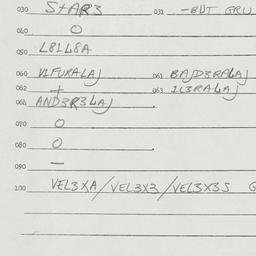 030 STAR3 031 -BUT GRU
040 O
050 L81L8A
060 V1FURALAJ 061 BAJD3RALAJ
062 + 063 1L3RALAJ
064 AND3R3LAJ
070 O
080 O
090 —
100 VEL3XA/VEL3X3/VEL3X3S G